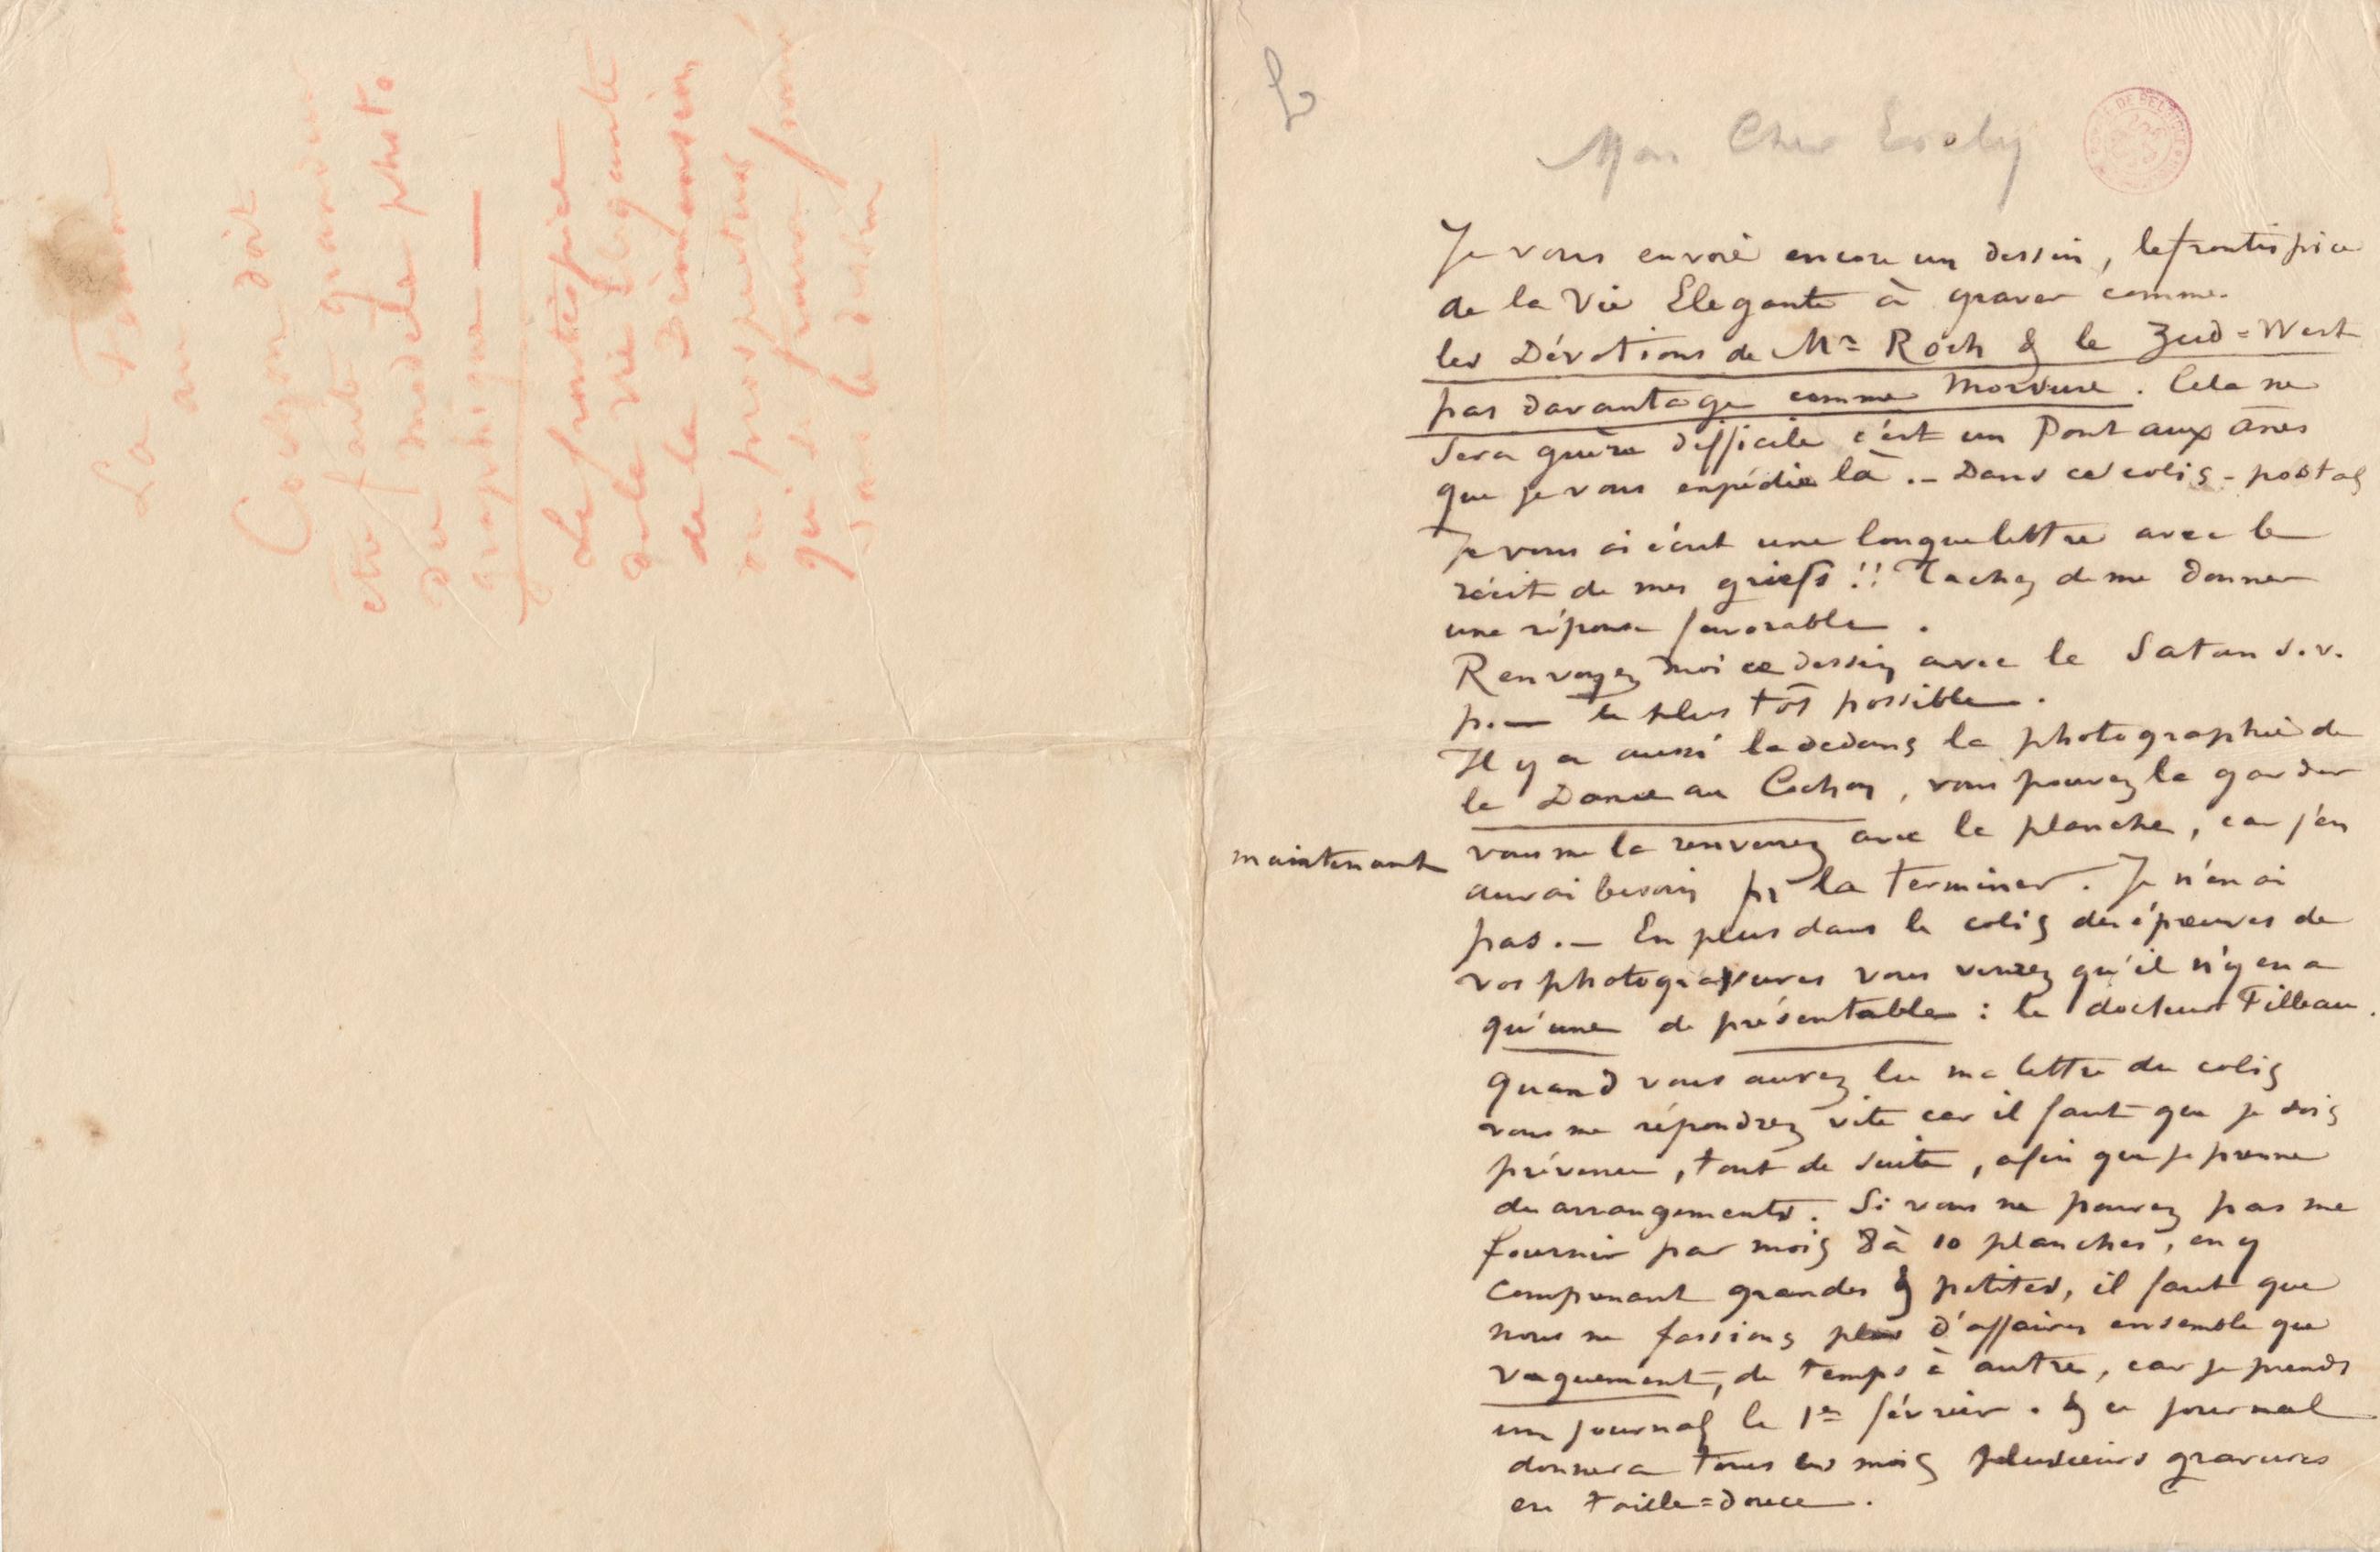 La Femme
au
Cochon doit
etre faite grandeur
du modele photo
graphique —
Le frontispice
de la vie Elégante
de la Dimension
du
qui se trouve
dans le dessin
Mon Cher Evely
Je vous envoie encore un dessin, le frontispice
de la Vie Elegante à graver comme
les Dévotions de Mr Roch & le Zud=West
pas davantage comme morsure. Cela ne
sera guère difficile c'est un Pont aux ânes
que je vous expédie là. – Dans ce colis-postal
Je vous ai écrit une longue lettre avec le
récit de mes griefs !! Tachez de me donner
une réponse favorable.
Renvoyez moi ce dessin avec le Satan s.v.
p. — le plus tôt possible.
Il y a aussi là dedans la photographie de
la Dame au Cochon, vous pouvez la garder
maintenant vous me la renverrez avec la planche, car j'en
aurai besoin pr la terminer. Je n'en ai
pas. — En plus dans le colis des épreuves de
vos photogravures vous verrez qu'il n'y en a
qu'une de présentable : le docteur Filleau.
Quand vous aurez lu ma lettre du colis
vous me répondrez vite car il faut que je sois
prévenu, tout de suite, afin que je prenne
des arrangements. Si vous ne pouvez pas me
fournir par mois 8 à 10 planches, en y
comprenant grandes & petites, il faut que
nous ne fassions plus d'affaires ensemble que
vaguement, de temps à autre, car je prends
un journal le 1er février. & ce journal
donnera tous les mois plusieurs gravures
en taille=douce.